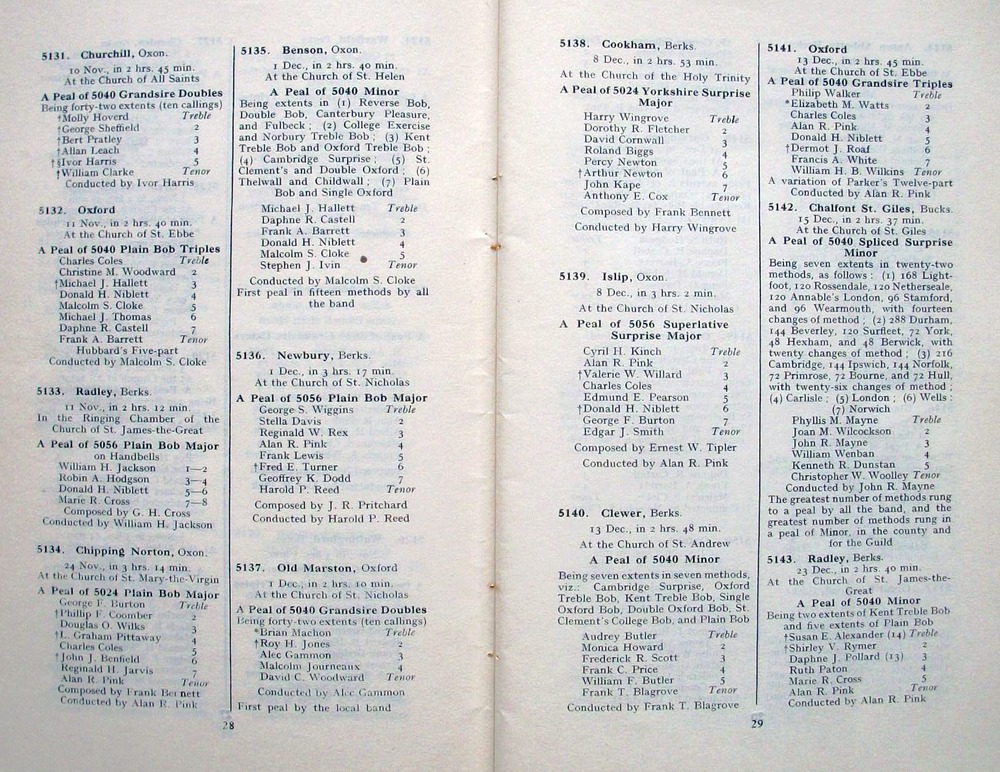 5131. Churchill, Oxon.
10 Nov., in 2 hrs. 45 min.
At the Church of All Saints
A Peal of 5040 Grandsire Doubles
Being forty-two extents (ten callings)
†Molly Hoverd Treble
†George Sheffield 2
†Bert Pratley 3
†Allan Leach 4
†§Ivor Harris 5
†William Clarke Tenor
Conducted by Ivor Harris
5132. Oxford
11 Nov., in 2 hrs. 40 min.
At the Church of St. Ebbe
A Peal of 5040 Plain Bob Triples
Charles Coles Treble
Christine M. Woodward 2
†Michael J. Hallett 3
Donald H. Niblett 4
Malcolm S. Cloke 5
Michael J. Thomas 6
Daphne R. Castell 7
Frank A. Barrett Tenor
Hubbard's Five-part
Conducted by Malcolm S. Cloke
5133. Radley, Berks.
11 Nov., in 2 hrs. 12 min.
In the Ringing Chamber of the
Church of St. James-the-Great
A Peal of 5056 Plain Bob Major
on Handbells
William H. Jackson 1—2
Robin A. Hodgson 3—4
Donald H. Niblett 5—6
Marie R. Cross 7—8
Composed by G. H. Cross
Conducted by William H. Jackson
5134. Chipping Norton, Oxon.
24 Nov., in 3 hrs. 14 min.
At the Church of St. Mary-the-Virgin
A Peal of 5024 Plain Bob Major
George F. Burton Treble
†Phillip F. Coomber 2
Douglas O. Wilks 3
†L. Graham Pittaway 4
Charles Coles 5
†John J. Benfield 6
Reginald H. Jarvis 7
Alan R. Pink Tenor
Composed by Frank Bennett
Conducted by Alan R. Pink
5135. Benson, Oxon.
1 Dec., in 2 hrs. 40 min.
At the Church of St. Helen
A Peal of 5040 Minor
Being extents in (1) Reverse Bob,
Double Bob, Canterbury Pleasure,
and Fulbeck; (2) College Exercise
and Norbury Treble Bob; (3) Kent
Treble Bob and Oxford Treble Bob;
(4) Cambridge Surprise; (5) St.
Clement's and Double Oxford; (6)
Thelwall and Childwall; (7) Plain
Bob and Single Oxford
Michael J. Hallett Treble
Daphne R. Castell 2
Frank A. Barrett 3
Donald H. Niblett 4
Malcolm S. Cloke 5
Stephen J. Ivin Tenor
Conducted by Malcolm S. Cloke
First peal in fifteen methods by all
the band
5136. Newbury, Berks.
1 Dec., in 3 hrs. 17 min.
At the Church of St. Nicholas
A Peal of 5056 Plain Bob Major
George S. Wiggins Treble
Stella Davis 2
Reginald W. Rex 3
Alan R. Pink 4
Frank Lewis 5
†Fred E. Turner 6
Geoffrey K. Dodd 7
Harold P. Reed Tenor
Composed by J. R. Pritchard
Conducted by Harold P. Reed
5137. Old Marston, Oxford
1 Dec., in 2 hrs. 10 min.
At the Church of St. Nicholas
A Peal of 5040 Grandsire Doubles
Being forty-two extents (ten callings)
*Brian Machon Treble
†Roy H. Jones 2
Alec Gammon 3
Malcolm Journeaux 4
David C. Woodward Tenor
Conducted by Alec Gammon
First peal by the local band
28
5138. Cookham, Berks.
8 Dec., in 2 hrs. 53 min.
At the Church of the Holy Trinity
A Peal of 5024 Yorkshire Surprise
Major
Harry Wingrove Treble
Dorothy R. Fletcher 2
David Cornwall 3
Roland Biggs 4
Percy Newton 5
†Arthur Newton 6
John Kape 7
Anthony E. Cox Tenor
Composed by Frank Bennett
Conducted by Harry Wingrove
5139. Islip, Oxon.
8 Dec., in 3 hrs. 2 min.
At the Church of St. Nicholas
A Peal of 5056 Superlative
Surprise Major
Cyril H. Kinch Treble
Alan R. Pink 2
†Valerie W. Willard 3
Charles Coles 4
Edmund E. Pearson 5
†Donald H. Niblett 6
George F. Burton 7
Edgar J. Smith Tenor
Composed by Ernest W. Tipler
Conducted by Alan R. Pink
5140. Clewer, Berks.
13 Dec., in 2 hrs. 48 min.
At the Church of St. Andrew
A Peal of 5040 Minor
Being seven extents in seven methods,
viz.: Cambridge Surprise, Oxford
Treble Bob, Kent Treble Bob, Single
Oxford Bob, Double Oxford Bob, St.
Clement's College Bob, and Plain Bob
Audrey Butler Treble
Monica Howard 2
Frederick R. Scott 3
Frank C. Price 4
William F. Butler 5
Frank T. Blagrove Tenor
Conducted by Frank T. Blagrove
5141. Oxford
13 Dec., in 2 hrs. 45 min.
At the Church of St. Ebbe
A Peal of 5040 Grandsire Triples
Philip Walker Treble
*Elizabeth M. Watts 2
Charles Coles 3
Alan R. Pink 4
Donald H. Niblett 5
†Dermot J. Roaf 6
Francis A. White 7
William H. B. Wilkins Tenor
A variation of Parker's Twelve-part
Conducted by Alan R. Pink
5142. Chalfont St. Giles, Bucks.
15 Dec., in 2 hrs. 37 min.
At the Church of St. Giles
A Peal of 5040 Spliced Surprise
Minor
Being seven extents in twenty-two
methods, as follows: (1) 168 Light-
foot, 120 Rossendale, 120 Netherseale,
120 Annable's London, 96 Stamford,
and 96 Wearmouth, with fourteen
changes of method; (2) 288 Durham,
144 Beverley, 120 Surfleet, 72 York,
48 Hexham, and 48 Berwick, with
twenty changes of method; (3) 216
Cambridge, 144 Ipswich, 144 Norfolk,
72 Primrose, 72 Bourne, and 72 Hull,
with twenty-six changes of method;
(4) Carlisle; (5) London; (6) Wells:
(7) Norwich
Phyllis M. Mayne Treble
Joan M. Wilcockson 2
John R. Mayne 3
William Wenban 4
Kenneth R. Dunstan 5
Christopher W. Woolley Tenor
Conducted by John R. Mayne
The greatest number of methods rung
to a peal by all the band, and the
greatest number of methods rung in
a peal of Minor, in the county and
for the Guild
5143. Radley, Berks.
23 Dec., in 2 hrs. 40 min.
At the Church of St. James-the-
Great
A Peal of 5040 Minor
Being two extents of Kent Treble Bob
and five extents of Plain Bob
†Susan E. Alexander (14) Treble
†Shirley V. Rymer 2
Daphne J. Pollard (13) 3
Ruth Paton 4
Marie R. Cross 5
Alan R. Pink Tenor
Conducted by Alan R. Pink
29